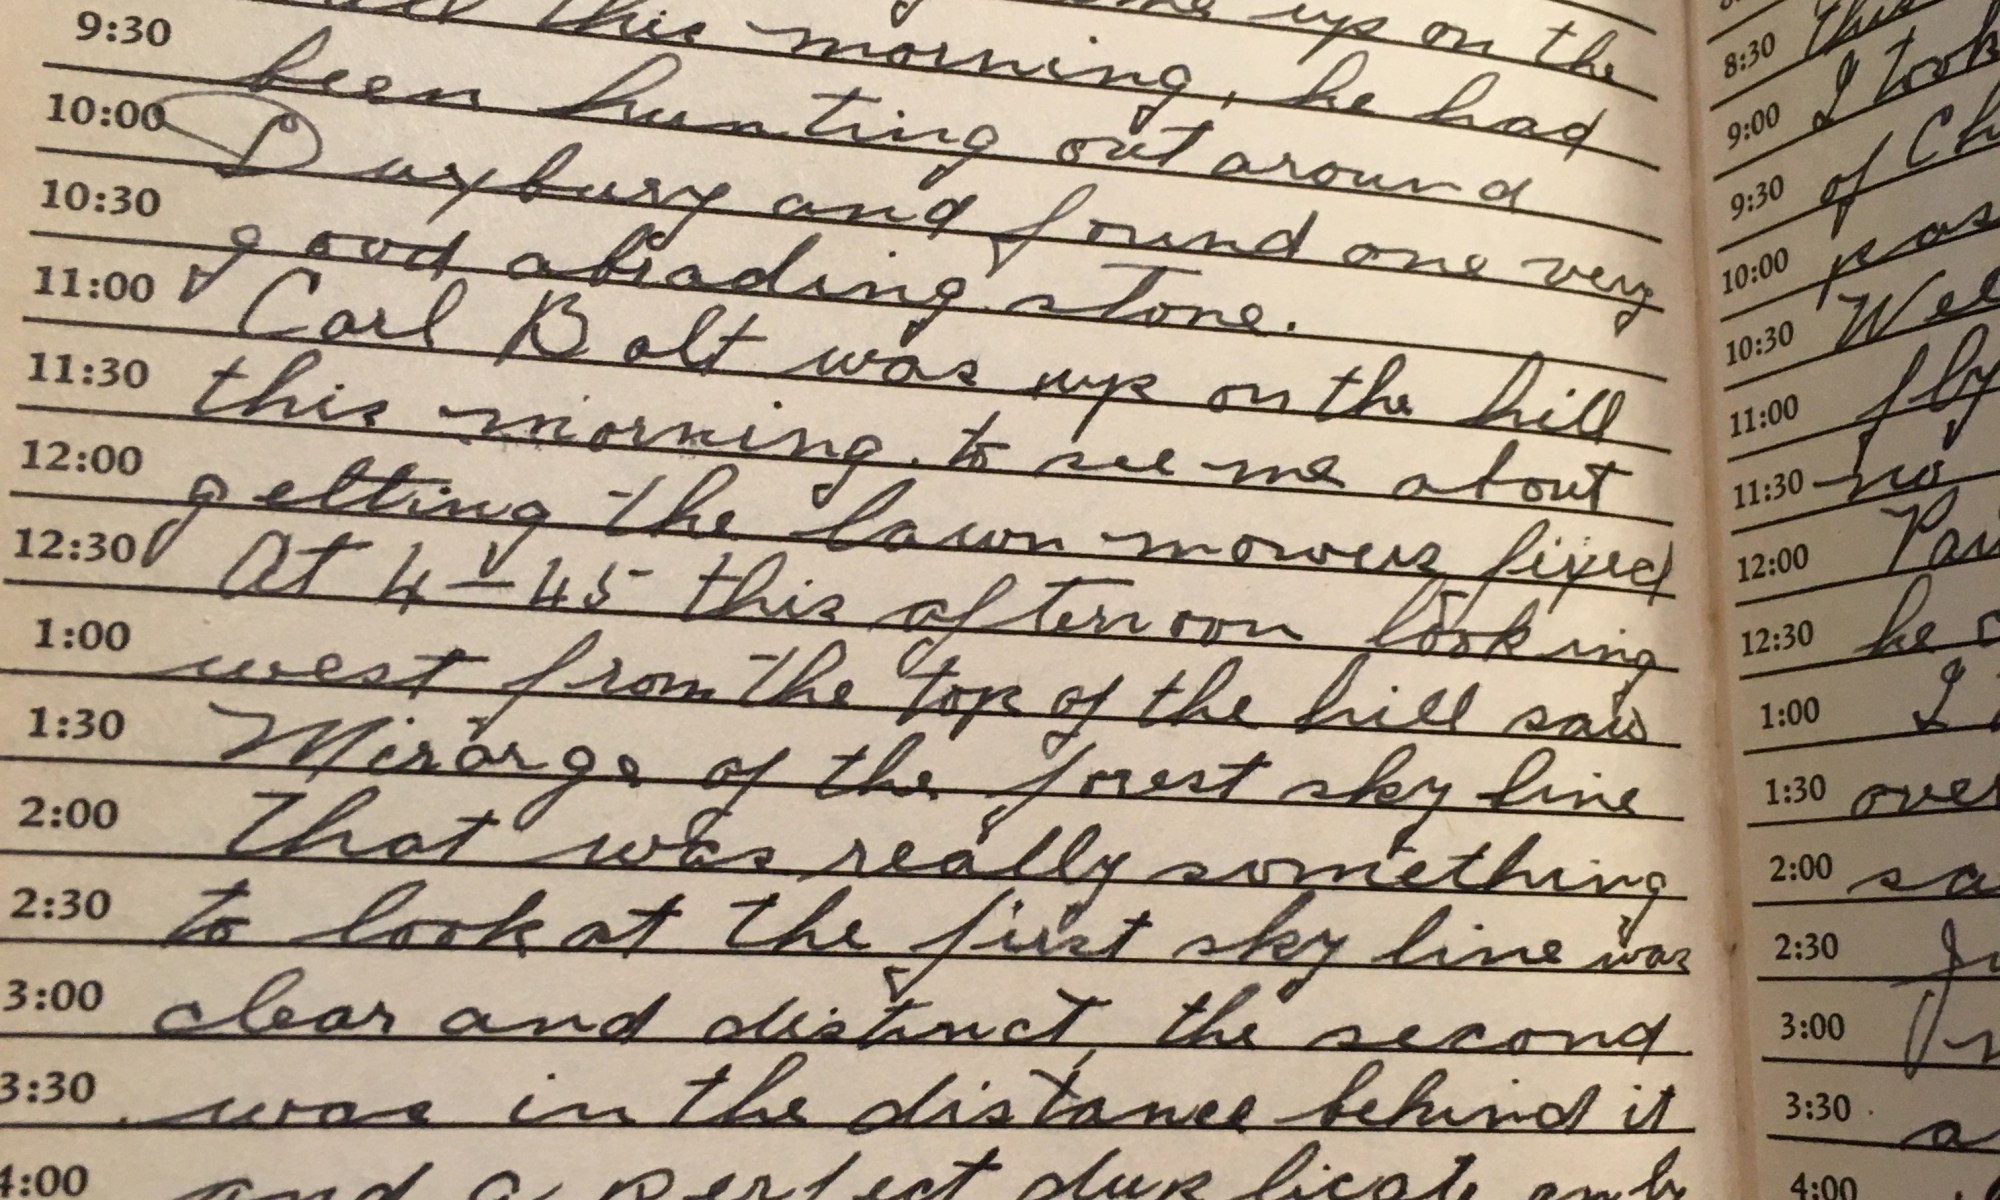 up on the
9:30 this morning, he had
10:00 been hunting out around
10:30 Duxbury and found one very
11:00 good abrading stone.
11:30 Carl Bolt was up on the hill
12:00 this morning, to see me about
12:30 getting the lawn mowers fixed
1:00 At 4-45 this afternoon looking
1:30 west from the top of the hill saw
2:00 Mirarge of the forest sky line
2:30 that was really something
3:00 to look at the first sky line was
3:30 clear and distinct, the second
4:00 was in the distance behind it
and a perfect duplicate only
8:30 this
9:00 I took
9:30 of Ch
10:00 pas
10:30 Wel
11:00 fly
11:30 no
12:00 Pau
12:30 he
1:00 I
1:30 over
2:00 sa
2:30
3:00
3:30 a
4:00